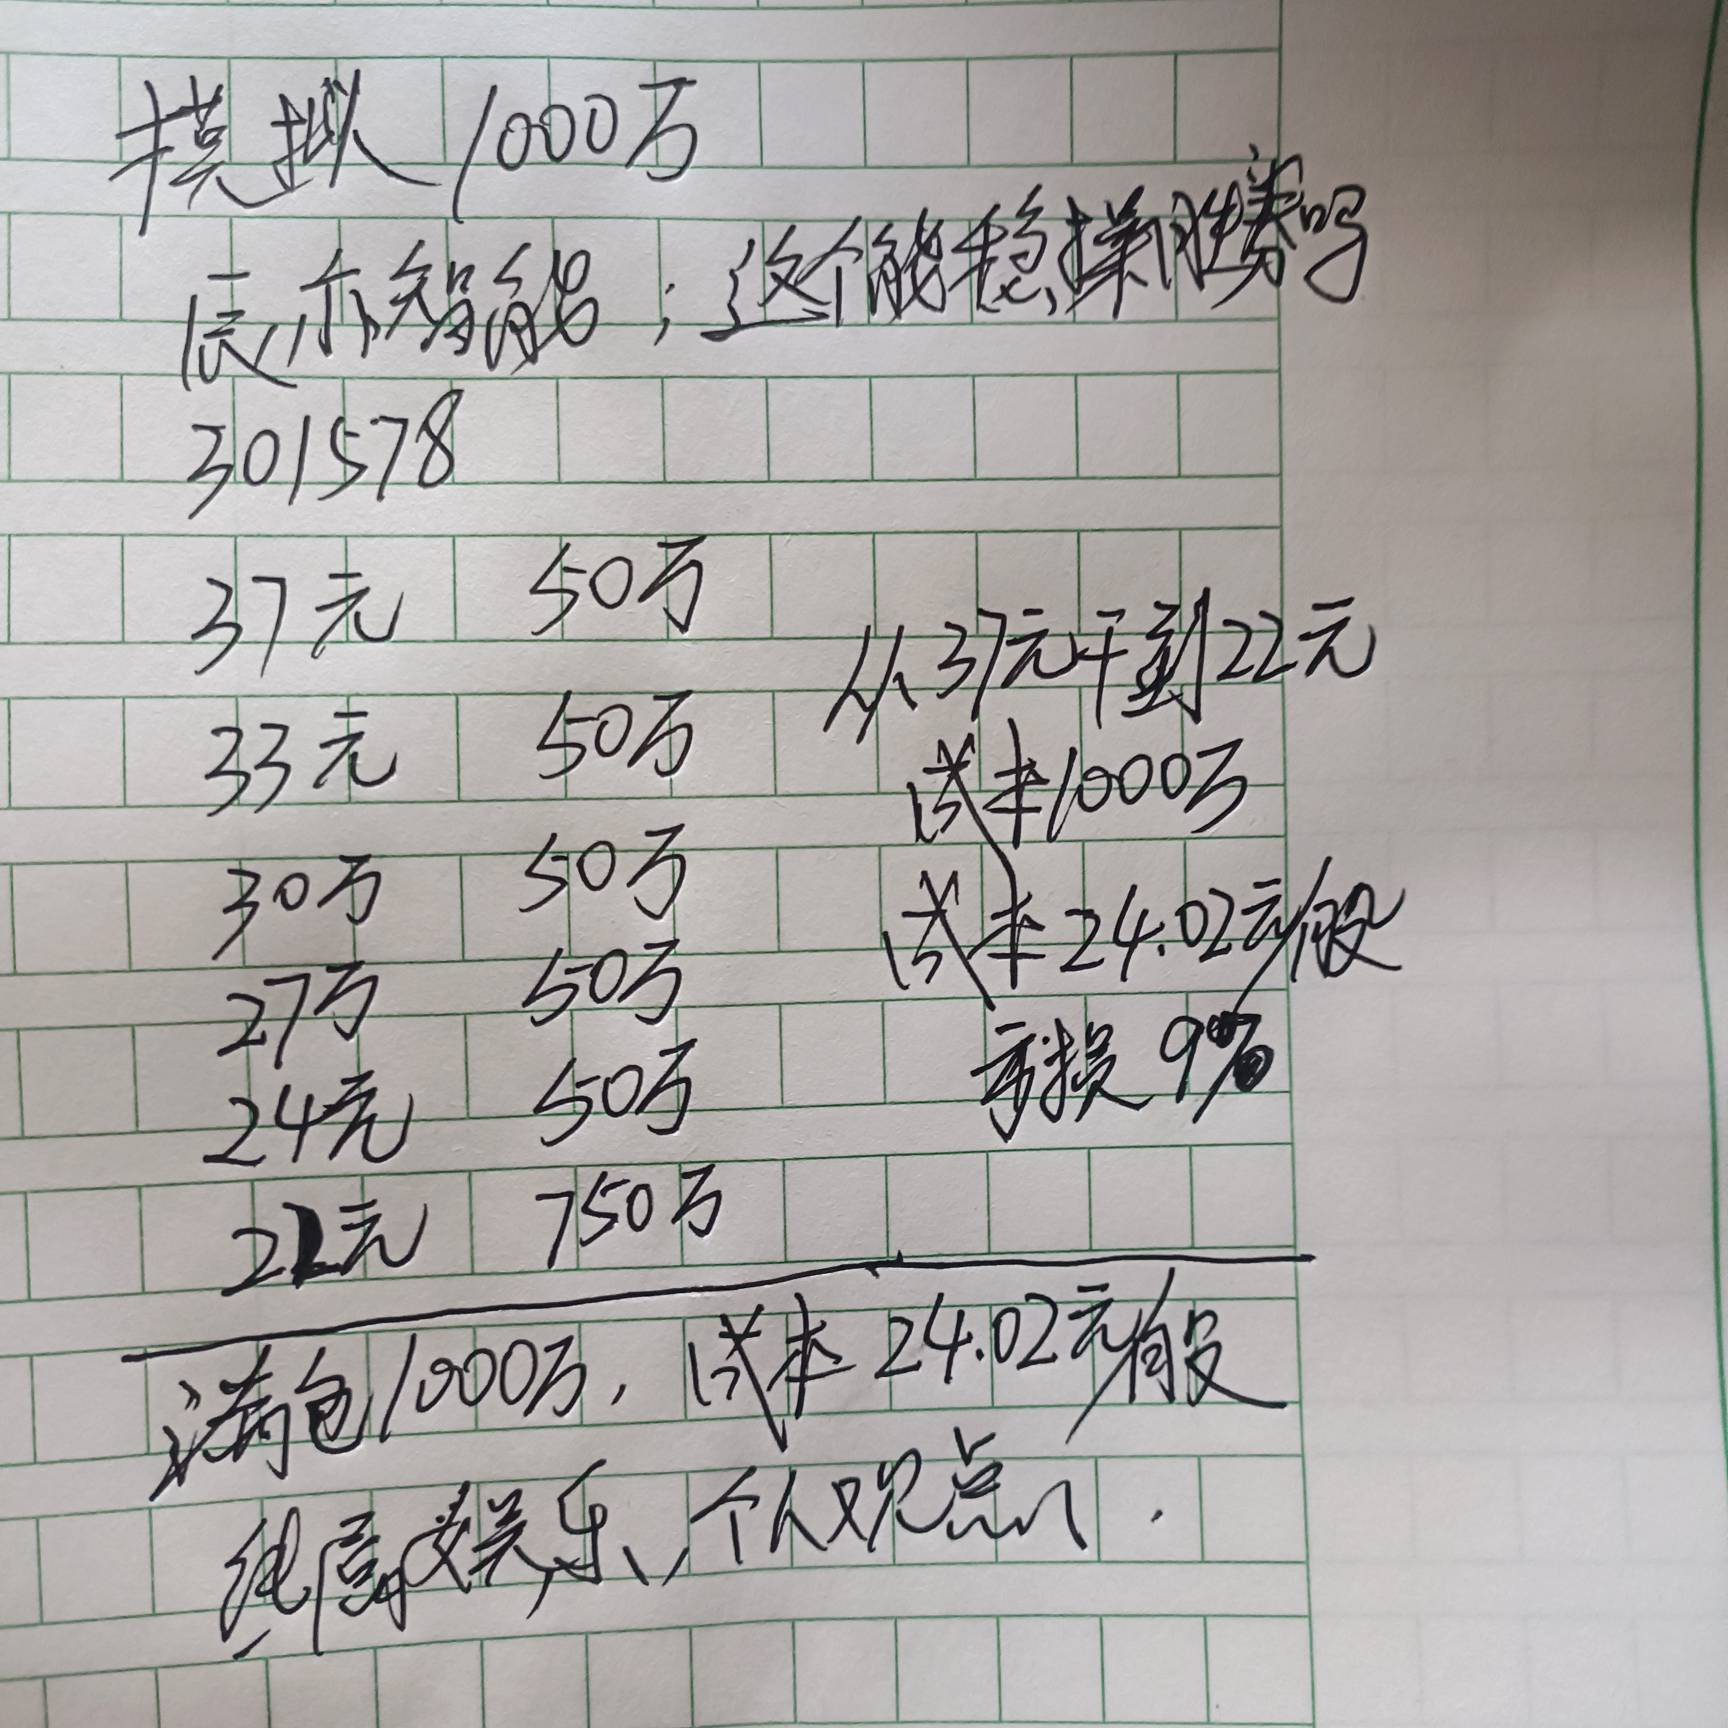 模拟1000万
辰奕智能；这个能稳操胜券吗
301578
37元 50万
33元 50万
30万 50万
27万 50万
24元 50万
22元 750万
从37元干到22元
成本1000万
成本24.02元/股
亏损9%
满仓1000万，成本24.02元/股
纯属娱乐，个人观点.